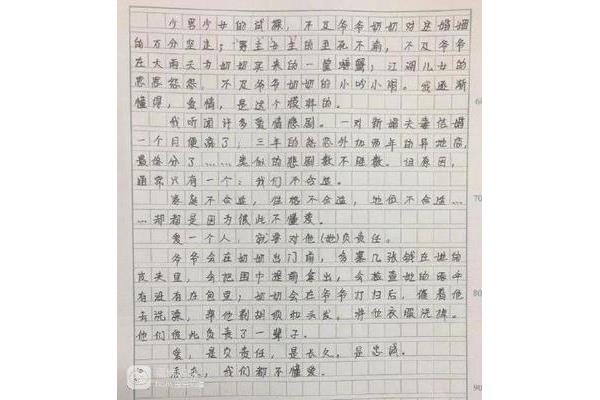 少男少女的试探，不及爷爷奶奶对这婚姻
的万分坚定；男主女主的至死不渝，不及爷爷
在大雨天为奶奶买来的一筐螃蟹；江湖儿女的
恩恩怨怨，不及爷爷奶奶的小吵小闹。我逐渐
懂得，爱情，是这个模样的。
我听闻许多爱情悲剧。一对新婚夫妻结婚
一个月便离了；三年的热恋外加两年的异地恋，
最终分了……类似的悲剧数不胜数。但原因，
通常只有一个：我们不合适。
家庭不合适，性格不合适，地位不合适……
……却都是因为彼此不懂爱。
爱一个人，就要对他(她)负责任。
爷爷会在奶奶出门前，多塞几张钱在她的
皮夹里，会把围巾提前拿出，会检查她的
有没有在包里；奶奶会在爷爷打扫后，催着他
去洗澡，帮他剃胡须和头发。将他衣服洗掉。
他们彼此负责了一辈子。
爱，是负责任，是长久，是忠诚。
我们都不懂爱。
60
70
80
90